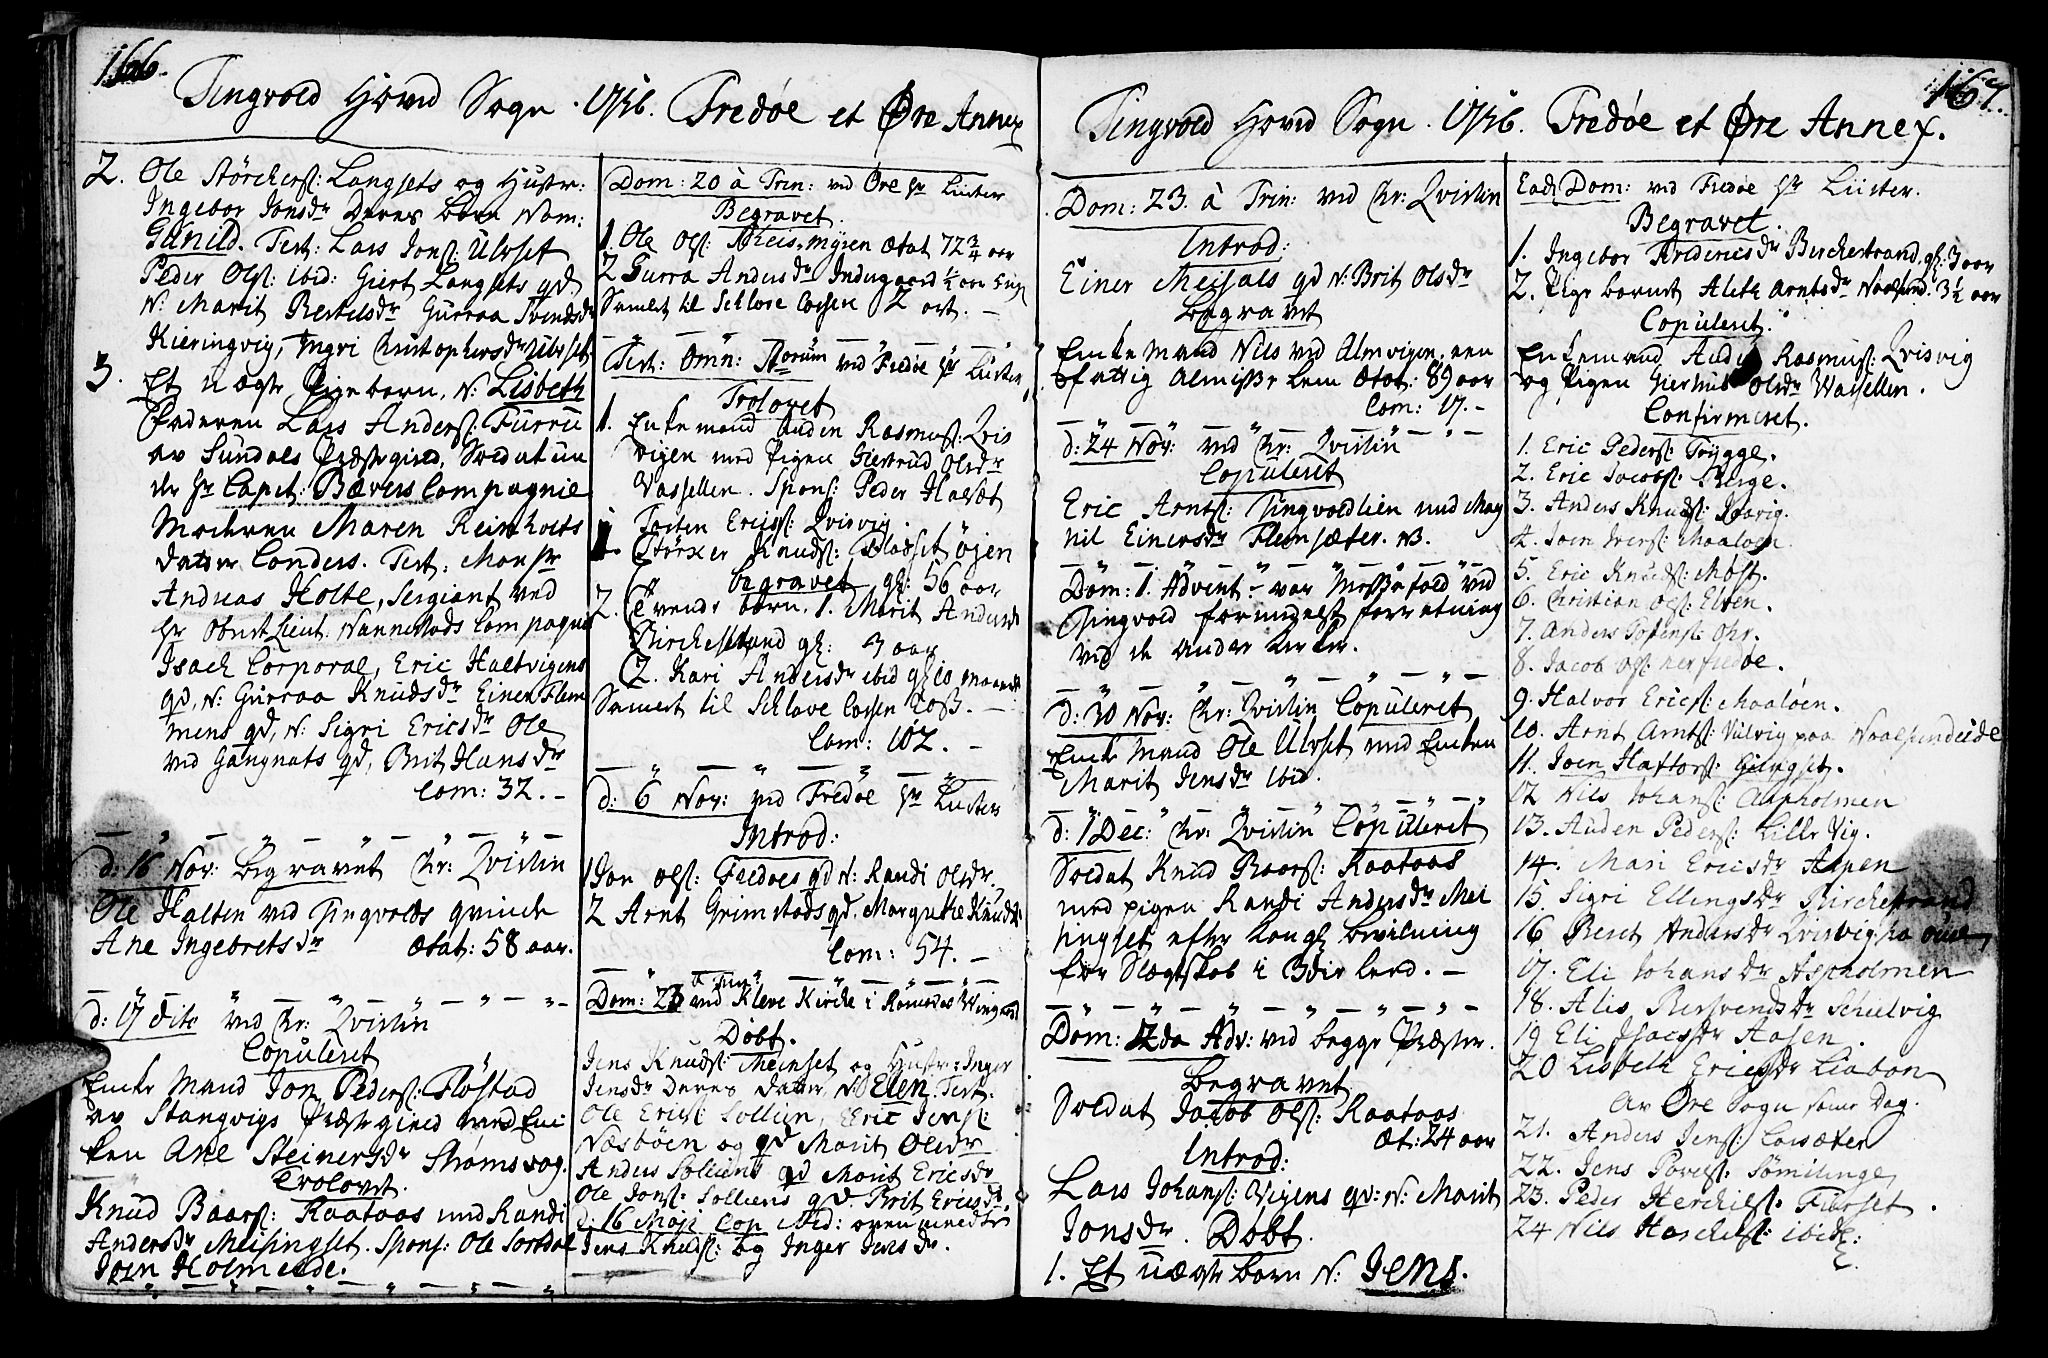 166.
Tingvold Hovid Sogn . 1756. Fredøe et Øre Annex
2. Ole Störchers: Langsets og Hustr:
Ingebor Jonsdr Deres barn Nom:
Gunild. Test: Lars Jons: Ulvset
Peder Ols: ibid: Giert Langsets qd
N: Marit Bertelsdr Gurraa Svendsdr
Kieringvig, Ingri Christophersdr Ulvset.
3. Et uægte Pigebarn, N: Lisbeth
Faderen Lars Anders: Furru
av Sundals Præstegield, Soldat un
der Hr Capit: Bævers Compagnie
Moderen Maren Reinholts
datter Conders. Test: Monsr
Andreas Holte, Sergiant ved
Hr Oberst Lieut. Nannestads Compagnie
Isach Corporal, Eric Haltvigens
qd, N: Gurraa Knudsdr Einer Flem
mens qd, N: Sigri Ericsdr Ole
ved Gangnats qd, Brit Hansdr
Com: 32. -
d: 16 Nov: begravet Hr: Qvistin
Ole Halten ved Tingvolds qvinde
Ane Ingebretsdr Ætat: 58 aar.
d: 17 dito ved Hr: Qvistin
Copuleret
Encke Mand Jon Peders: Flöstad
av Stangvigs Præstegield med En
ken Ane Steinersdr Strømsvog.
Trolovet.
Knud Baars: Raataas med Randi
Andersdr Meisingset. Spons: Ole Sordal
Joen Holmeide.
Dom: 20 à Trin: ved Øre Hr Lüster
Begravet.
1. Ole Ols: Reis,,myren Ætat 72 3/4 aar
2 Gurra Andersdr Indergaard 1/4 aar
Samlet til Sellose Cassen 2 ort. -
Fest: Omn: Storum ved Fredøe Hr Lüster
Trolovet
1. Enkemand Auden Rasmus: Qvis
vigen med Pigen Giertrud Olsdr
Vassellen. Spons: Peder Halset
Tosten Erics: Qvisvig.
1. Störcker Knuds: Bladset øjen
begravet gl: 56 aar
2. Tvende börn, 1. Marit Andersdr
Birchestrand gl: 3 aar
(2. Kari Andersdr ibid gl 10 maaneder
Samlet til Sellose Cassen 20ß. -
Com: 102. -
d: 6 Nov: ved Fredøe Hr Lüster
Introd:
1 Jon Ols: Fredøes qd N: Randi Olsdr.
2 Arnt Grimstads qd. Margrethe Knudsdr
Com: 54. -
Dom: 23 à Trin: ved Kleve Kirche i Romsdals
Döbt.
Jens Knuds: Meinset og Hustr: Inger
Jensdr Deres Datter N: Elen. Test:
Ole Erics: Sollien, Eric Jens:
Næsböen og qd Marit Olsdr
Anders Solliens qd Marit Ericsdr
Ole Jons: Solliens qd. Brit Ericsdr
d: 16 Maji Cop ibid: ovenmeldte
Jens Knuds: og Inger Jensdr.
167.
Tingvold Hovid Sogn . 1756. Fredøe et Øre Annex.
Dom: 23 à Trin: ved Hr: Qvistin
Introd:
Einer Meisals qd N: Brit Olsdr
Begravet
Enkemand Nils ved Almvigen, een
fattig Almisse lem Ætat: 89 aar
Com: 17. -
d: 24 Nov: ved Hr: Qvistin
Copuleret
Eric Arnts: Tingvoldlien med Mag
nil Einersdr Flemsæter. NB.
Dom: 1. Advent - var Messefald ved
Tingvold formedelst forretning
ved de andre Kirker.
d: 30 Nov: Hr: Qvistin Copuleret
Encke Mand Ole Ulvset med Encken
Marit Jensdr ibid.
d: 1 Dec: Hr: Qvistin Copuleret
Soldat Knud Baars: Raataas
med pigen Randi Andersdr Mei
singset efter Kongl bevilning
for Slægtskab i 3die leed. -
Dom: 2da Adv: ved begge Præster.
Begravet
Soldat Jacob Ols: Raataas
Æt: 24 aar
Introd:
Lars Johans: Vigens qd: N: Marit
Jonsdr. Döbt.
1. Et uægte barn N: Jens.
Eod Dom: ved Fredøe Hr Lüster.
Begravet.
1. Ingebor Fredericsdr Birchestrand, gl: 3 aar
2. Pige barnet Aleth Arntsdr 3 1/2 aar
Copuleret.
Enkemand Auden Rasmus: Qvisvig
og Pigen Giertrud Olsdr Wassellen.
Confirmeret.
1. Eric Peders: Trygge.
2. Eric Jacobs: Berge.
3. Anders Knuds: Boorig.
4. Joen Ivers: Maaløen.
5. Eric Knuds: Møst.
6. Christian Ols: Elven.
7. Anders Tostens: Ohr.
8. Jacob Ols: Nerfredøe.
9. Halvor Erics: Maaløen.
10. Arnt Arnts: Vulvig paa Noalsundeide
11. Joen Haftors: Gulugset.
12 Nils Johans: Aspholmen
13. Auden Peders: Lille Vig.
14. Mari Ericsdr Aspen
15. Sigri Ellingsdr Birchestrand
16 Beret Andersdr Qvisvig
17. Eli Johansdr Aspholmen
18. Alis Bersvendsdr Schulvig
19 Eli Isacsdr Aasen.
20 Lisbeth Ericsdr Liabøn
Av Øre Sogn samme Dag.
21. Anders Jens: Carsæter
22. Jens Povels: Sömilinge
23. Peder Herchels: Furset.
24 Nils Herchels: ibid: